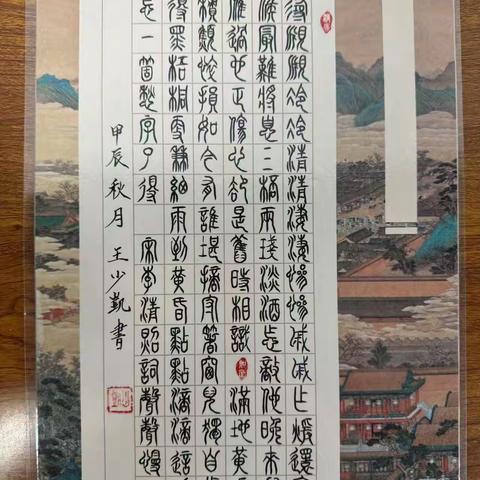 尋覓覓冷冷清清淒淒慘慘戚戚乍暖還
候最難將息三杯兩盞淡酒怎敵他晚來
雁過也正傷心卻是舊時相識滿地黃
積憔悴損如今有誰堪摘守著窗兒獨自
得黑梧桐更兼細雨到黃昏點點滴滴這
怎一箇愁字了得 宋李清照詞聲聲慢
甲辰秋月 王少勤書